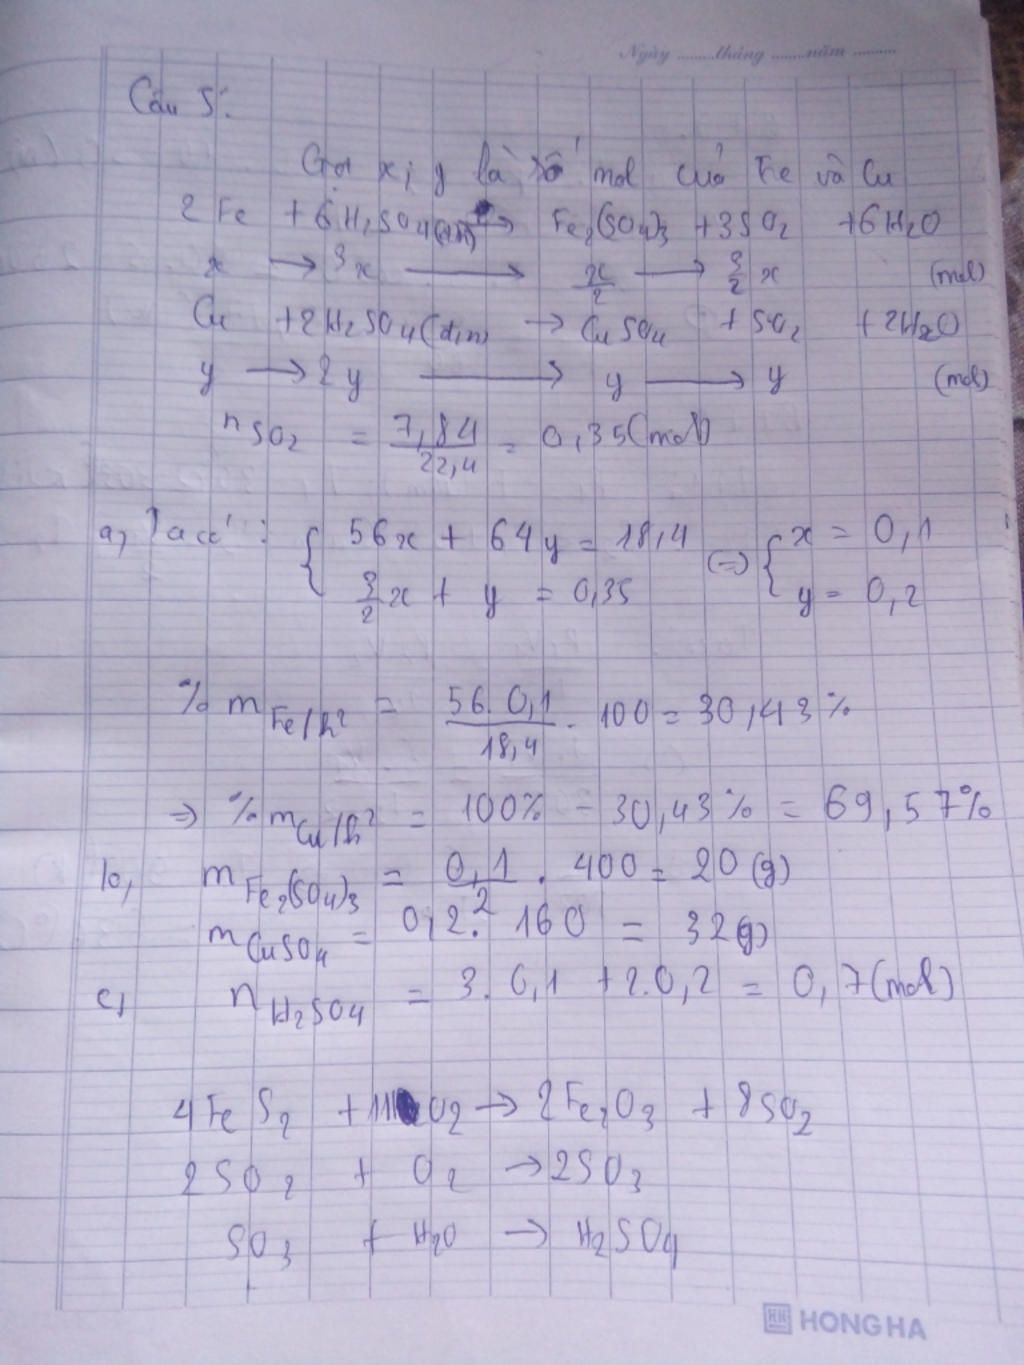 Ngày ........tháng .......năm ..........
Câu 5:
Gọi x, y là số mol của Fe và Cu
2Fe + 6H₂SO₄(đ,n) → Fe₂(SO₄)₃ + 3SO₂ + 6H₂O
x → 3x → x/2 → 3/2 x (mol)
Cu + 2H₂SO₄(đ,n) → CuSO₄ + SO₂ + 2H₂O
y → 2y → y → y (mol)
nSO₂ = 7,84/22,4 = 0,35(mol)
a, Ta có: { 56x + 64y = 18,4 (=) { x = 0,1
3/2 x + y = 0,35 y = 0,2
% mFe/h² = 56.0,1/18,4 . 100 = 30,43%
=> % mCu/h² = 100% - 30,43% = 69,57%
b, mFe₂(SO₄)₃ = 0,1/2 . 400 = 20(g)
mCuSO₄ = 0,2. 160 = 32(g)
c, nH₂SO₄ = 3. 0,1 + 2.0,2 = 0,7(mol)
4FeS₂ + 11O₂ → 2Fe₂O₃ + 8SO₂
2SO₂ + O₂ → 2SO₃
SO₃ + H₂O → H₂SO₄
HH HONG HA